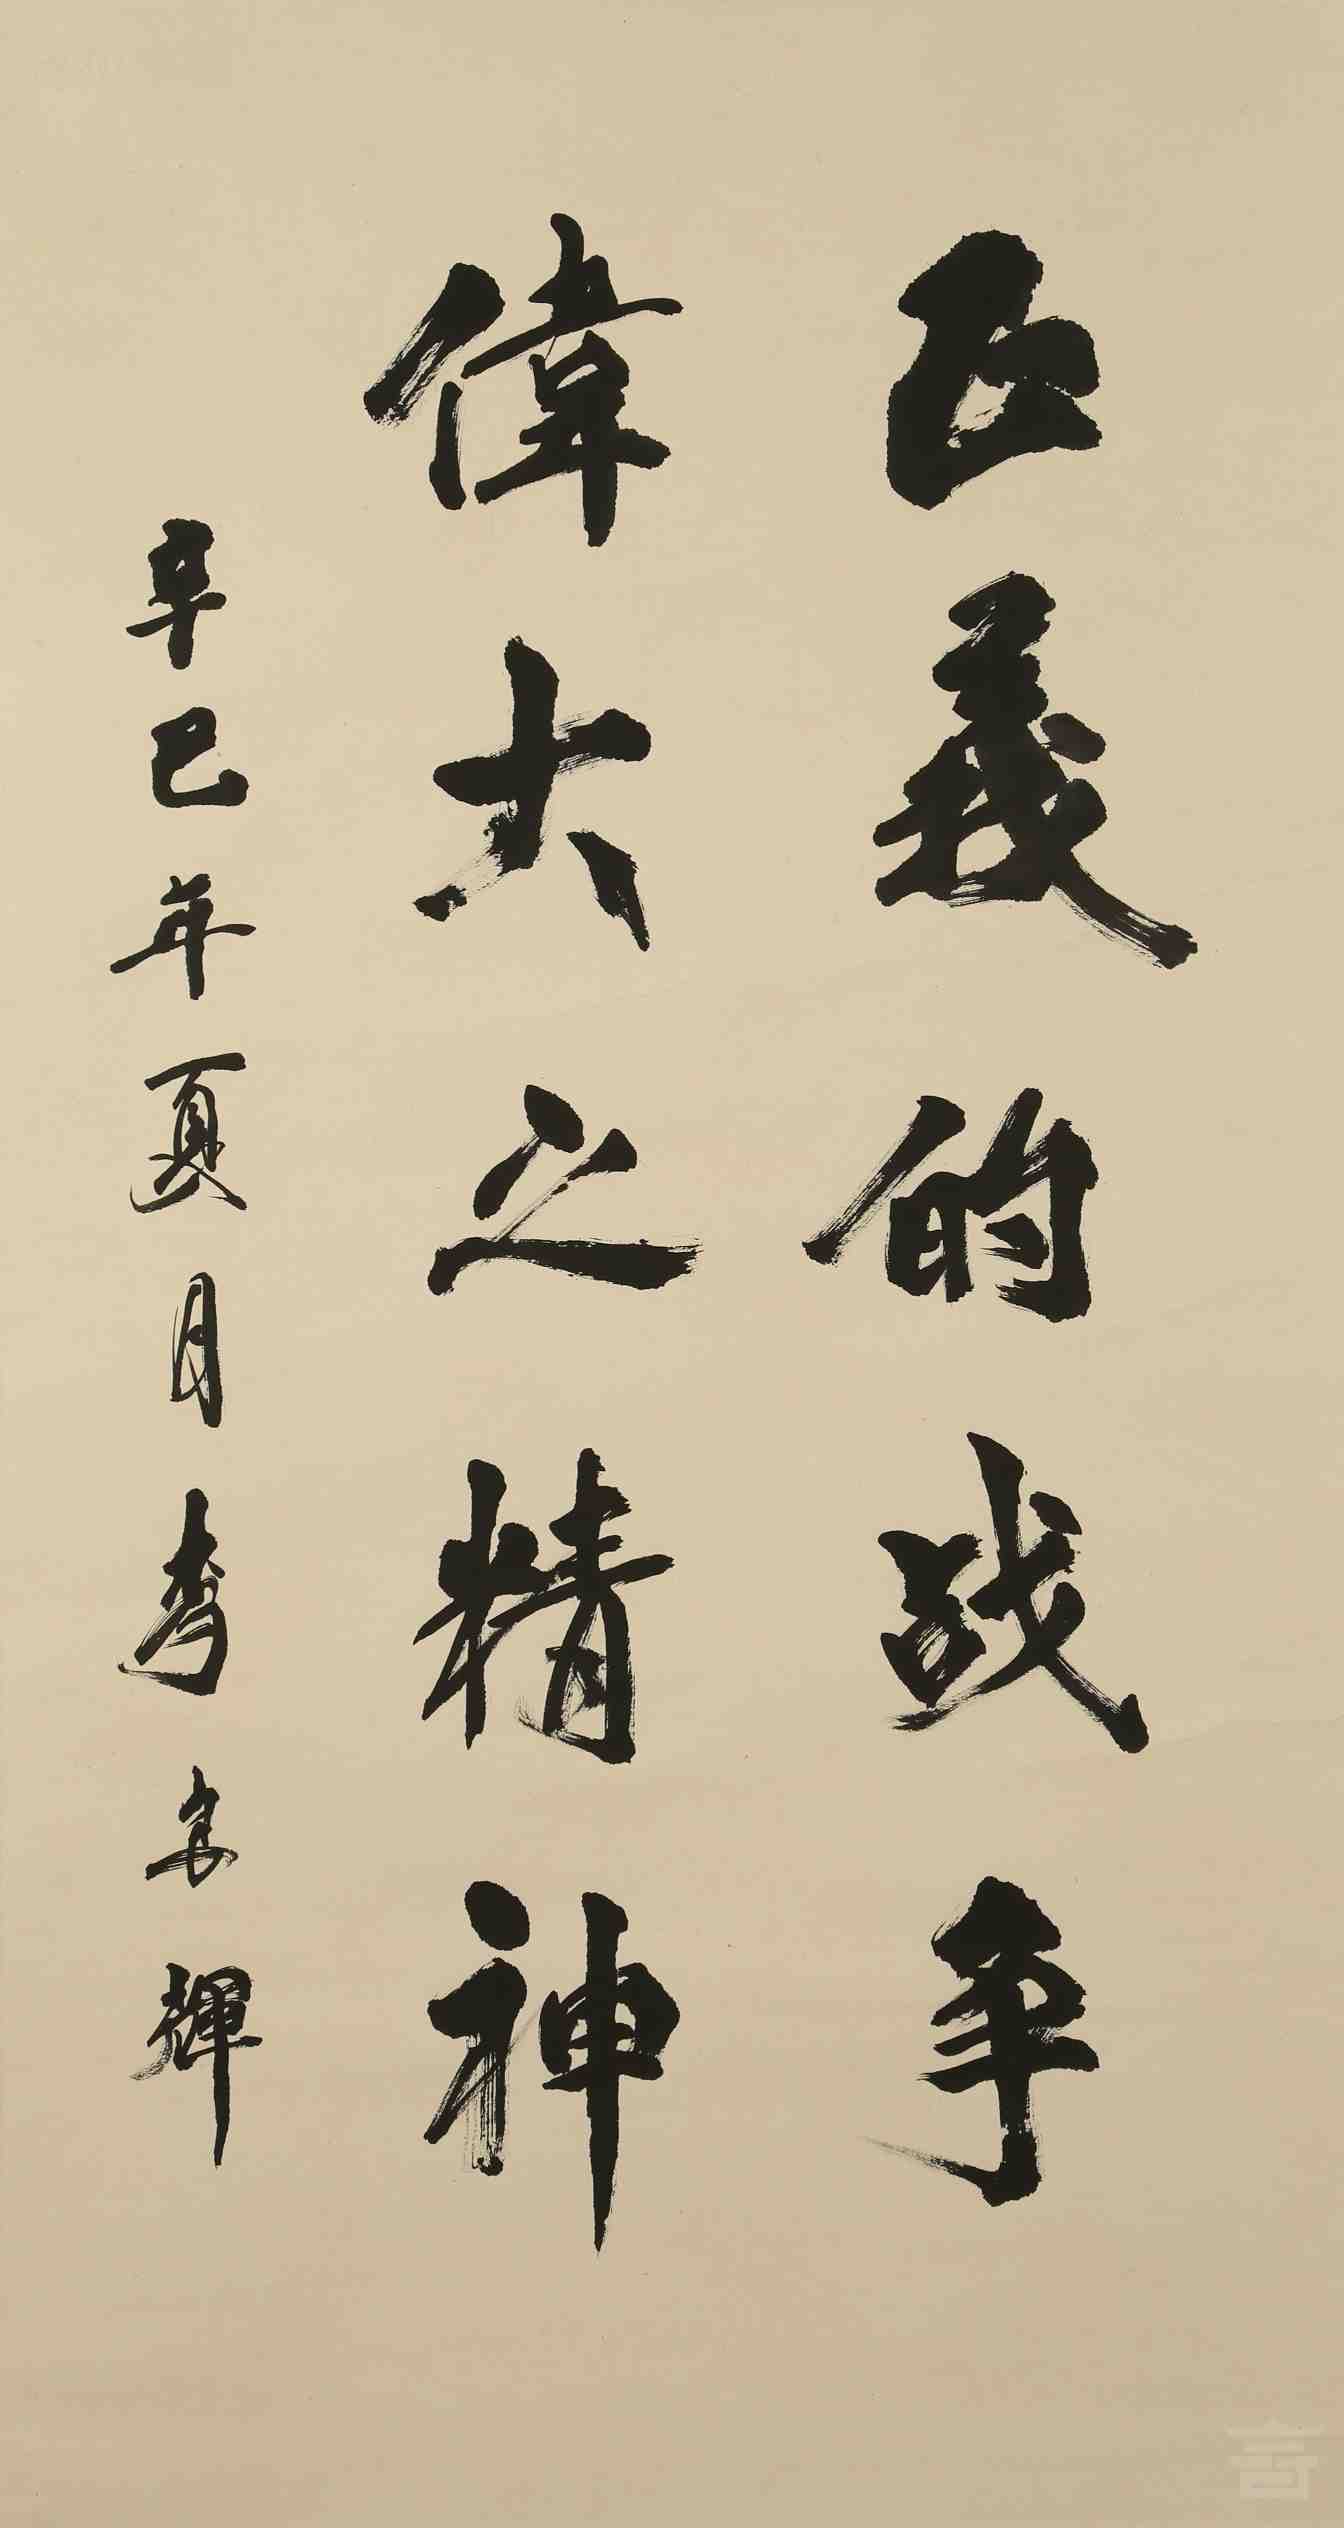 正義的战争
偉大之精神
辛巳年夏月李輝